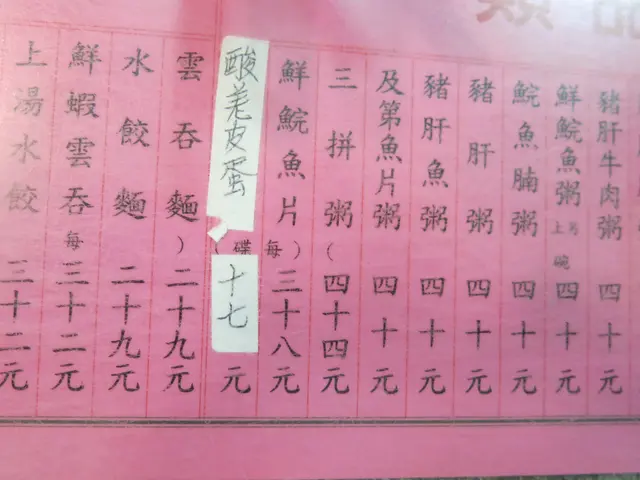 豬肝牛肉粥 四十元
鮮鯇魚粥 四十元
鯇魚腩粥 四十元
豬肝粥 四十元
豬肝魚粥 四十元
及第魚片粥 四十元
三拼粥 四十四元
鮮鯇魚片 (每碟) 三十八元
酸羌皮蛋 十七元
雲吞麵 二十九元
水餃麵 二十九元
鮮蝦雲吞 每 三十二元
上湯水餃 三十二元